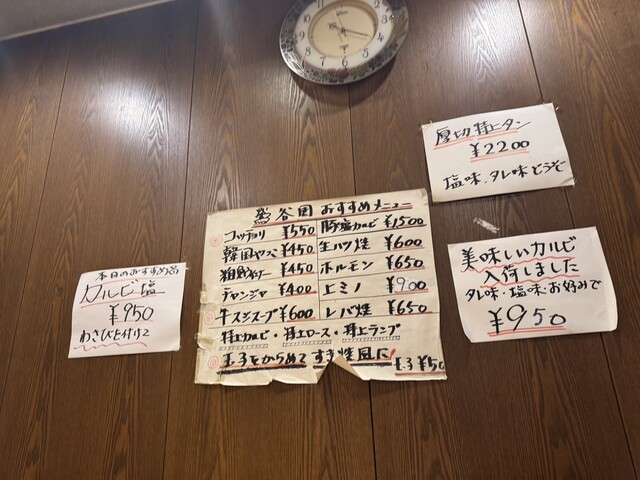 厚切特上タン
¥2200
塩味、タレ味どうぞ
鶯谷園おすすめメニュー
コッチョリ ¥550
豚塩カルビ ¥1,500
韓国やっこ ¥450
生ハツ焼 ¥600
¥450
ホルモン ¥650
チャンジャ ¥400
上ミノ ¥900
牛スジスープ ¥600
レバ焼 ¥650
特上カルビ・特上ロース・特上ランプ
玉子をからめてすき焼風に!
玉子¥50
本日のおすすめ品
カルビ塩
¥950
わさびと付けて
美味しいカルビ
入荷しました
タレ味・塩味お好みで
¥950